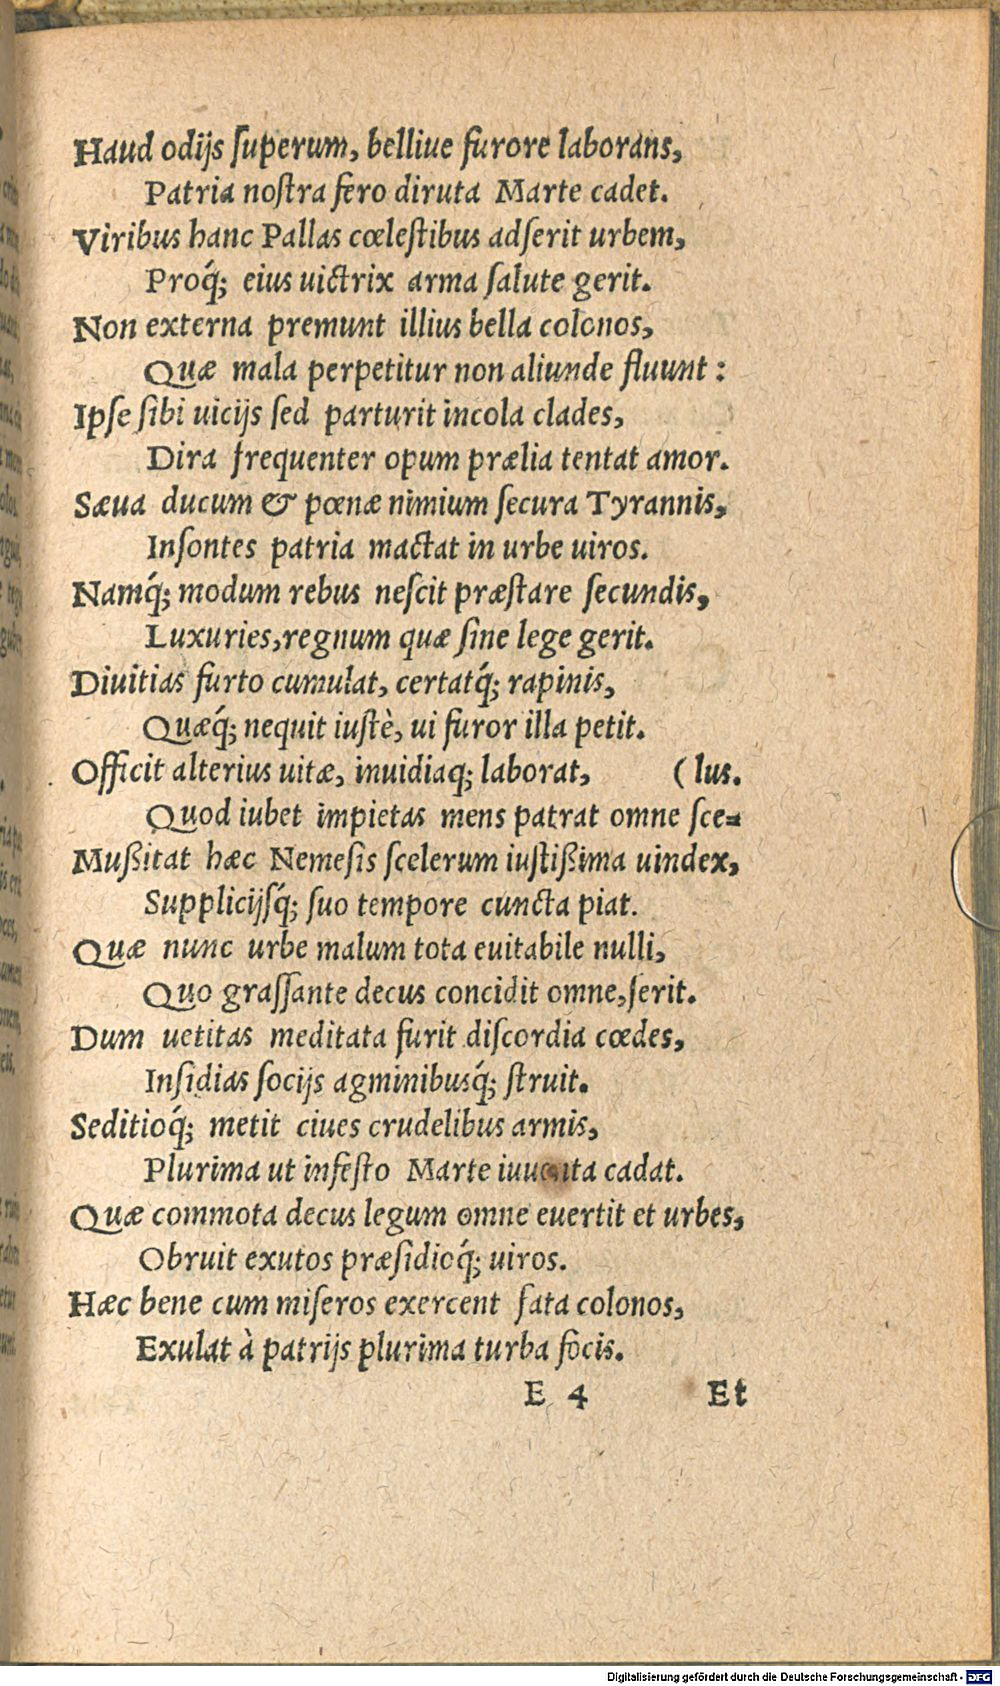 Haud odijs ſuperum, belliue furore laborans,
Patria noſtra fero diruta Marte cadet.
Viribus hanc Pallas cœleſtibus adſerit urbem,
Proq́; eius uictrix arma ſalute gerit.
Non externa premunt illius bella colonos,
Quæ mala perpetitur non aliunde fluunt:
Ipſe ſibi uicijs ſed parturit incola clades,
Dira frequenter opum prælia tentat amor.
Sæua ducum & pœnæ nimium ſecura Tyrannis,
Inſontes patria mactat in urbe uiros.
Namq́; modum rebus neſcit præſtare ſecundis,
Luxuries, regnum quæ ſine lege gerit.
Diuitias furto cumulat, certatq́; rapinis,
Quæq́; nequit iuſtè, ui furor illa petit.
Officit alterius uitæ, inuidiaq; laborat, (lus.
Quod iubet impietas mens patrat omne ſce=
Mußitat hæc Nemeſis ſcelerum iuſtißima uindex,
Supplicijſq́; ſuo tempore cuncta piat.
Quæ nunc urbe malum tota euitabile nulli,
Quo graſſante decus concidit omne, ſerit.
Dum uetitas meditata furit diſcordia cœdes,
Inſidias ſocijs agminibusq́; ſtruit.
Seditioq́; metit ciues crudelibus armis,
Plurima ut infeſto Marte iuuenta cadat.
Quæ commota decus legum omne euertit et urbes,
Obruit exutos præſidioq́; uiros.
Hæc bene cum miſeros exercent fata colonos,
Exulat à patrijs plurima turba focis.
E 4 Et
Digitalisierung gefördert durch die Deutsche Forschungsgemeinschaft - DFG